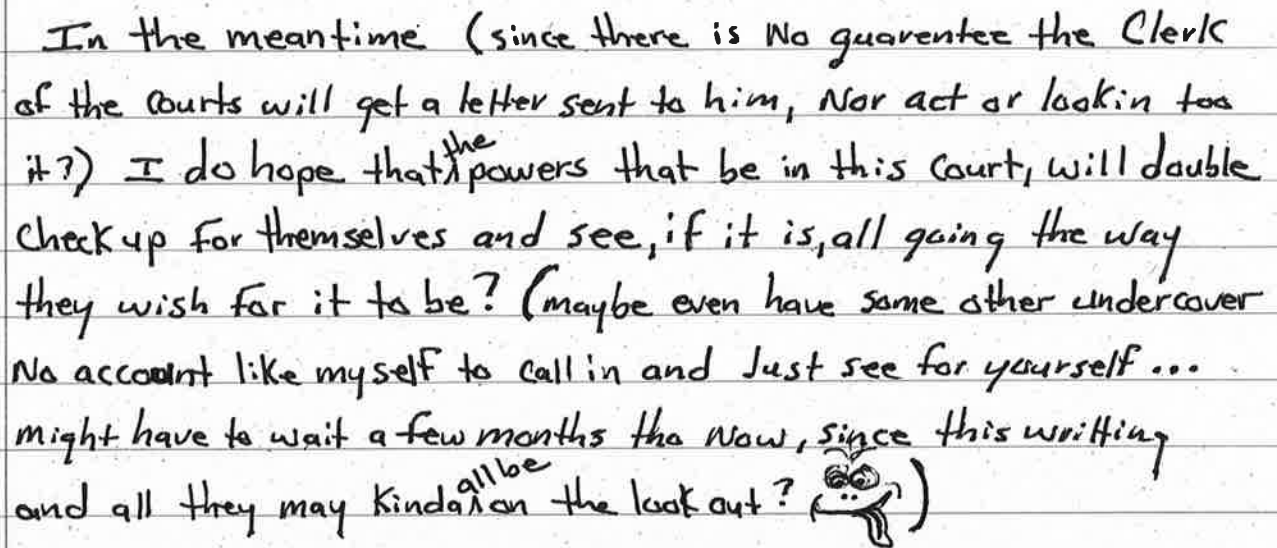 In the meantime (since there is No guarentee the Clerk
of the Courts will get a letter sent to him, Nor act or lookin too
it?) I do hope that the powers that be in this Court, will double
Check up for themselves and see, if it is, all going the way
they wish for it to be? (maybe even have some other undercover
No account like myself to call in and Just see for yourself...
might have to wait a few months tho Now, since this writting
and all they may Kinda all be on the look out? )